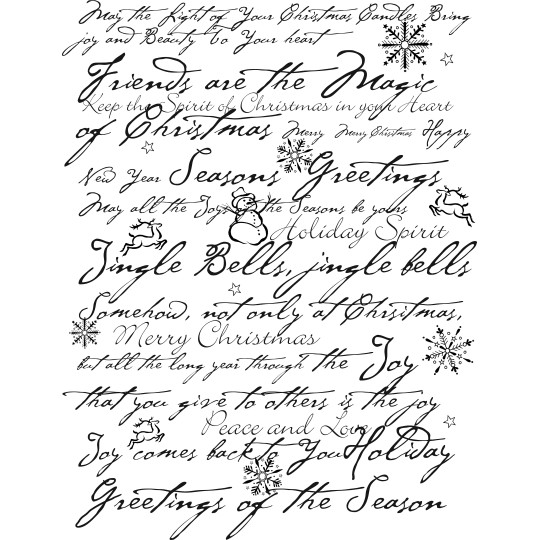 May the Light of Your Christmas Candles Bring
joy and Beauty to Your heart
Friends are the Magic
Keep the Spirit of Christmas in your Heart
of Christmas Merry Merry Christmas Happy
New Year Seasons Greetings
May all the Joys the Seasons be yours
Holiday Spirit
Jingle Bells, jingle bells
Somehow, not only at Christmas,
Merry Christmas
but all the long year through the Joy
that you give to others is the joy
Peace and Love
Joy comes back to You Holiday
Greetings of the Season